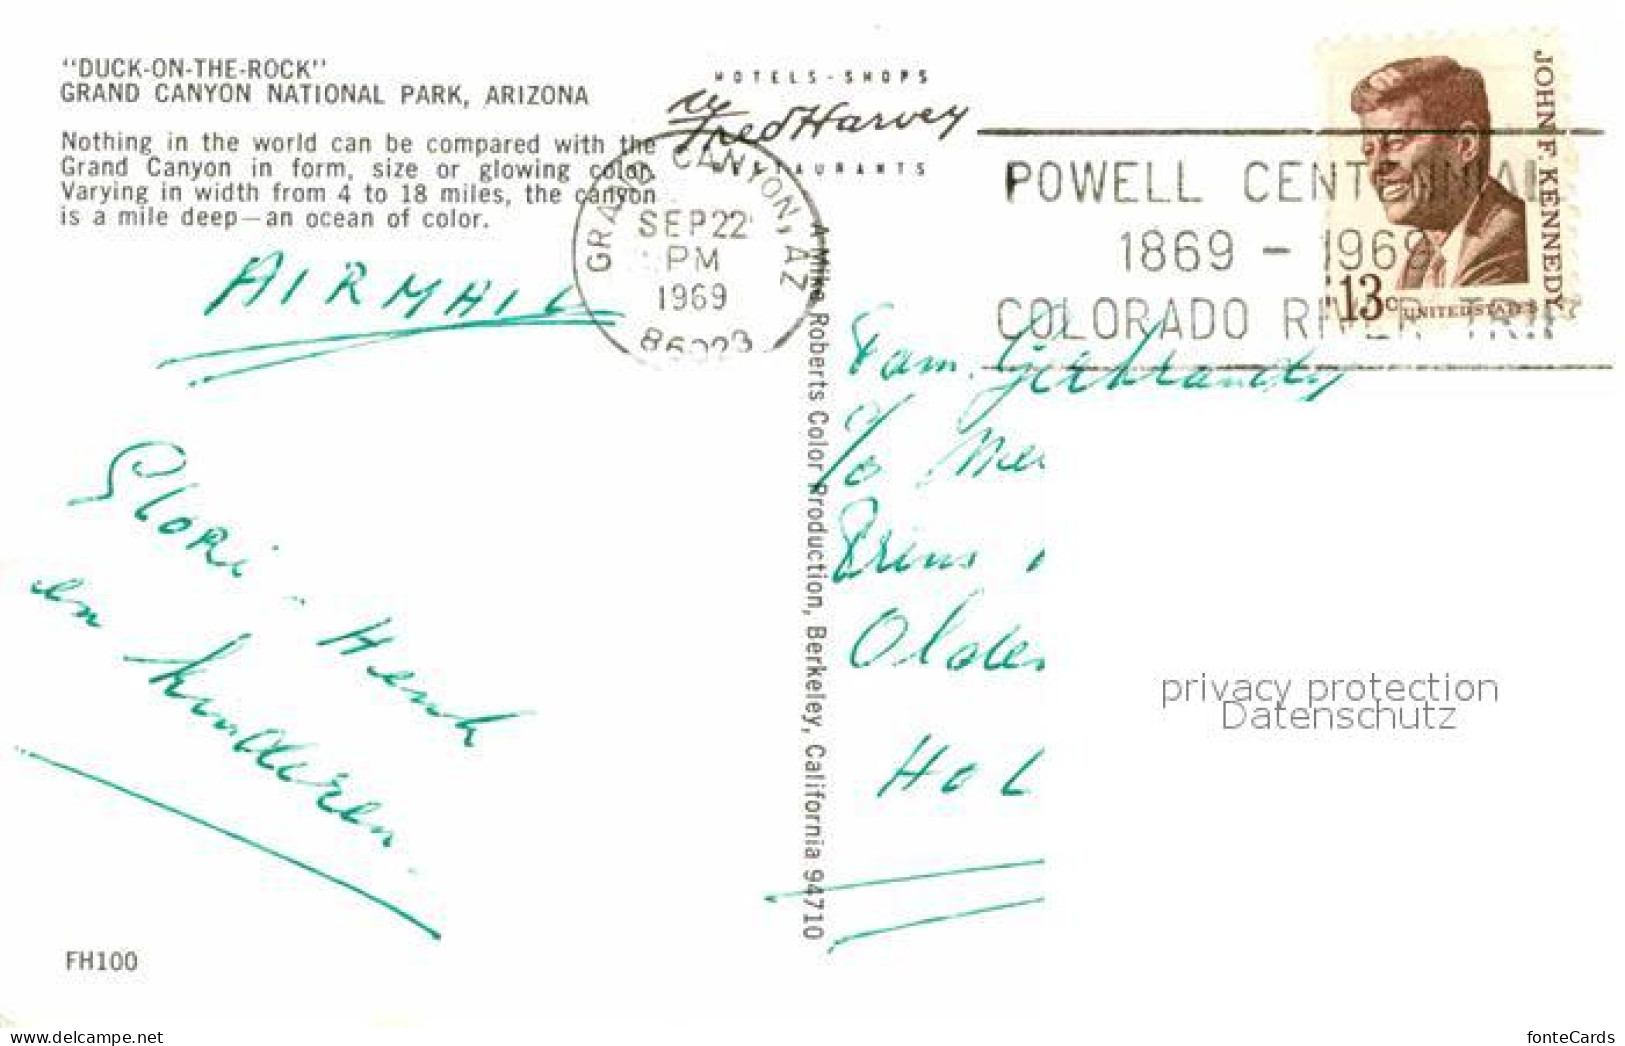 "DUCK-ON-THE-ROCK"
GRAND CANYON NATIONAL PARK, ARIZONA
Nothing in the world can be compared with the
Grand Canyon in form, size or glowing color.
Varying in width from 4 to 18 miles, the canyon
is a mile deep—an ocean of color.
HOTELS-SHOPS
Fred Harvey
RESTAURANTS
GRAND CANYON, AZ
SEP 22
PM
1969
86023
POWELL CENTENNIAL
1869 - 1969
COLORADO RIVER TRIP
JOHN F. KENNEDY
13c UNITED STATES
AIRMAIL
Glori - Henk
en kinderen.
A Mike Roberts Color Production, Berkeley, California 94710
Fam. Gerbrandy
c/o
Prins
HoL
FH100
privacy protection
Datenschutz
www.delcampe.net
fonteCards